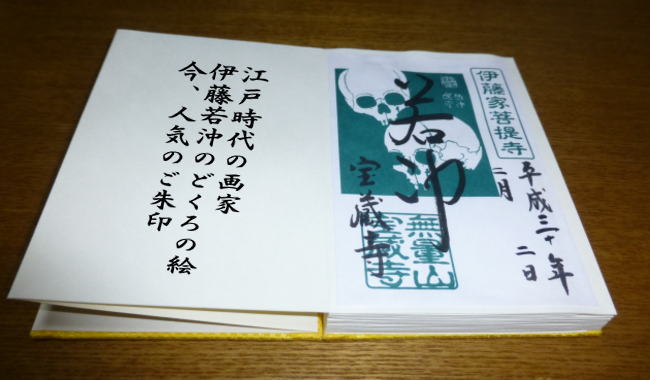 江戸時代の画家
伊藤若冲のどくろの絵
今、人気のご朱印
伊藤家菩提寺
平成三十年
二月 二日
若冲
宝蔵寺
無量山
宝蔵寺